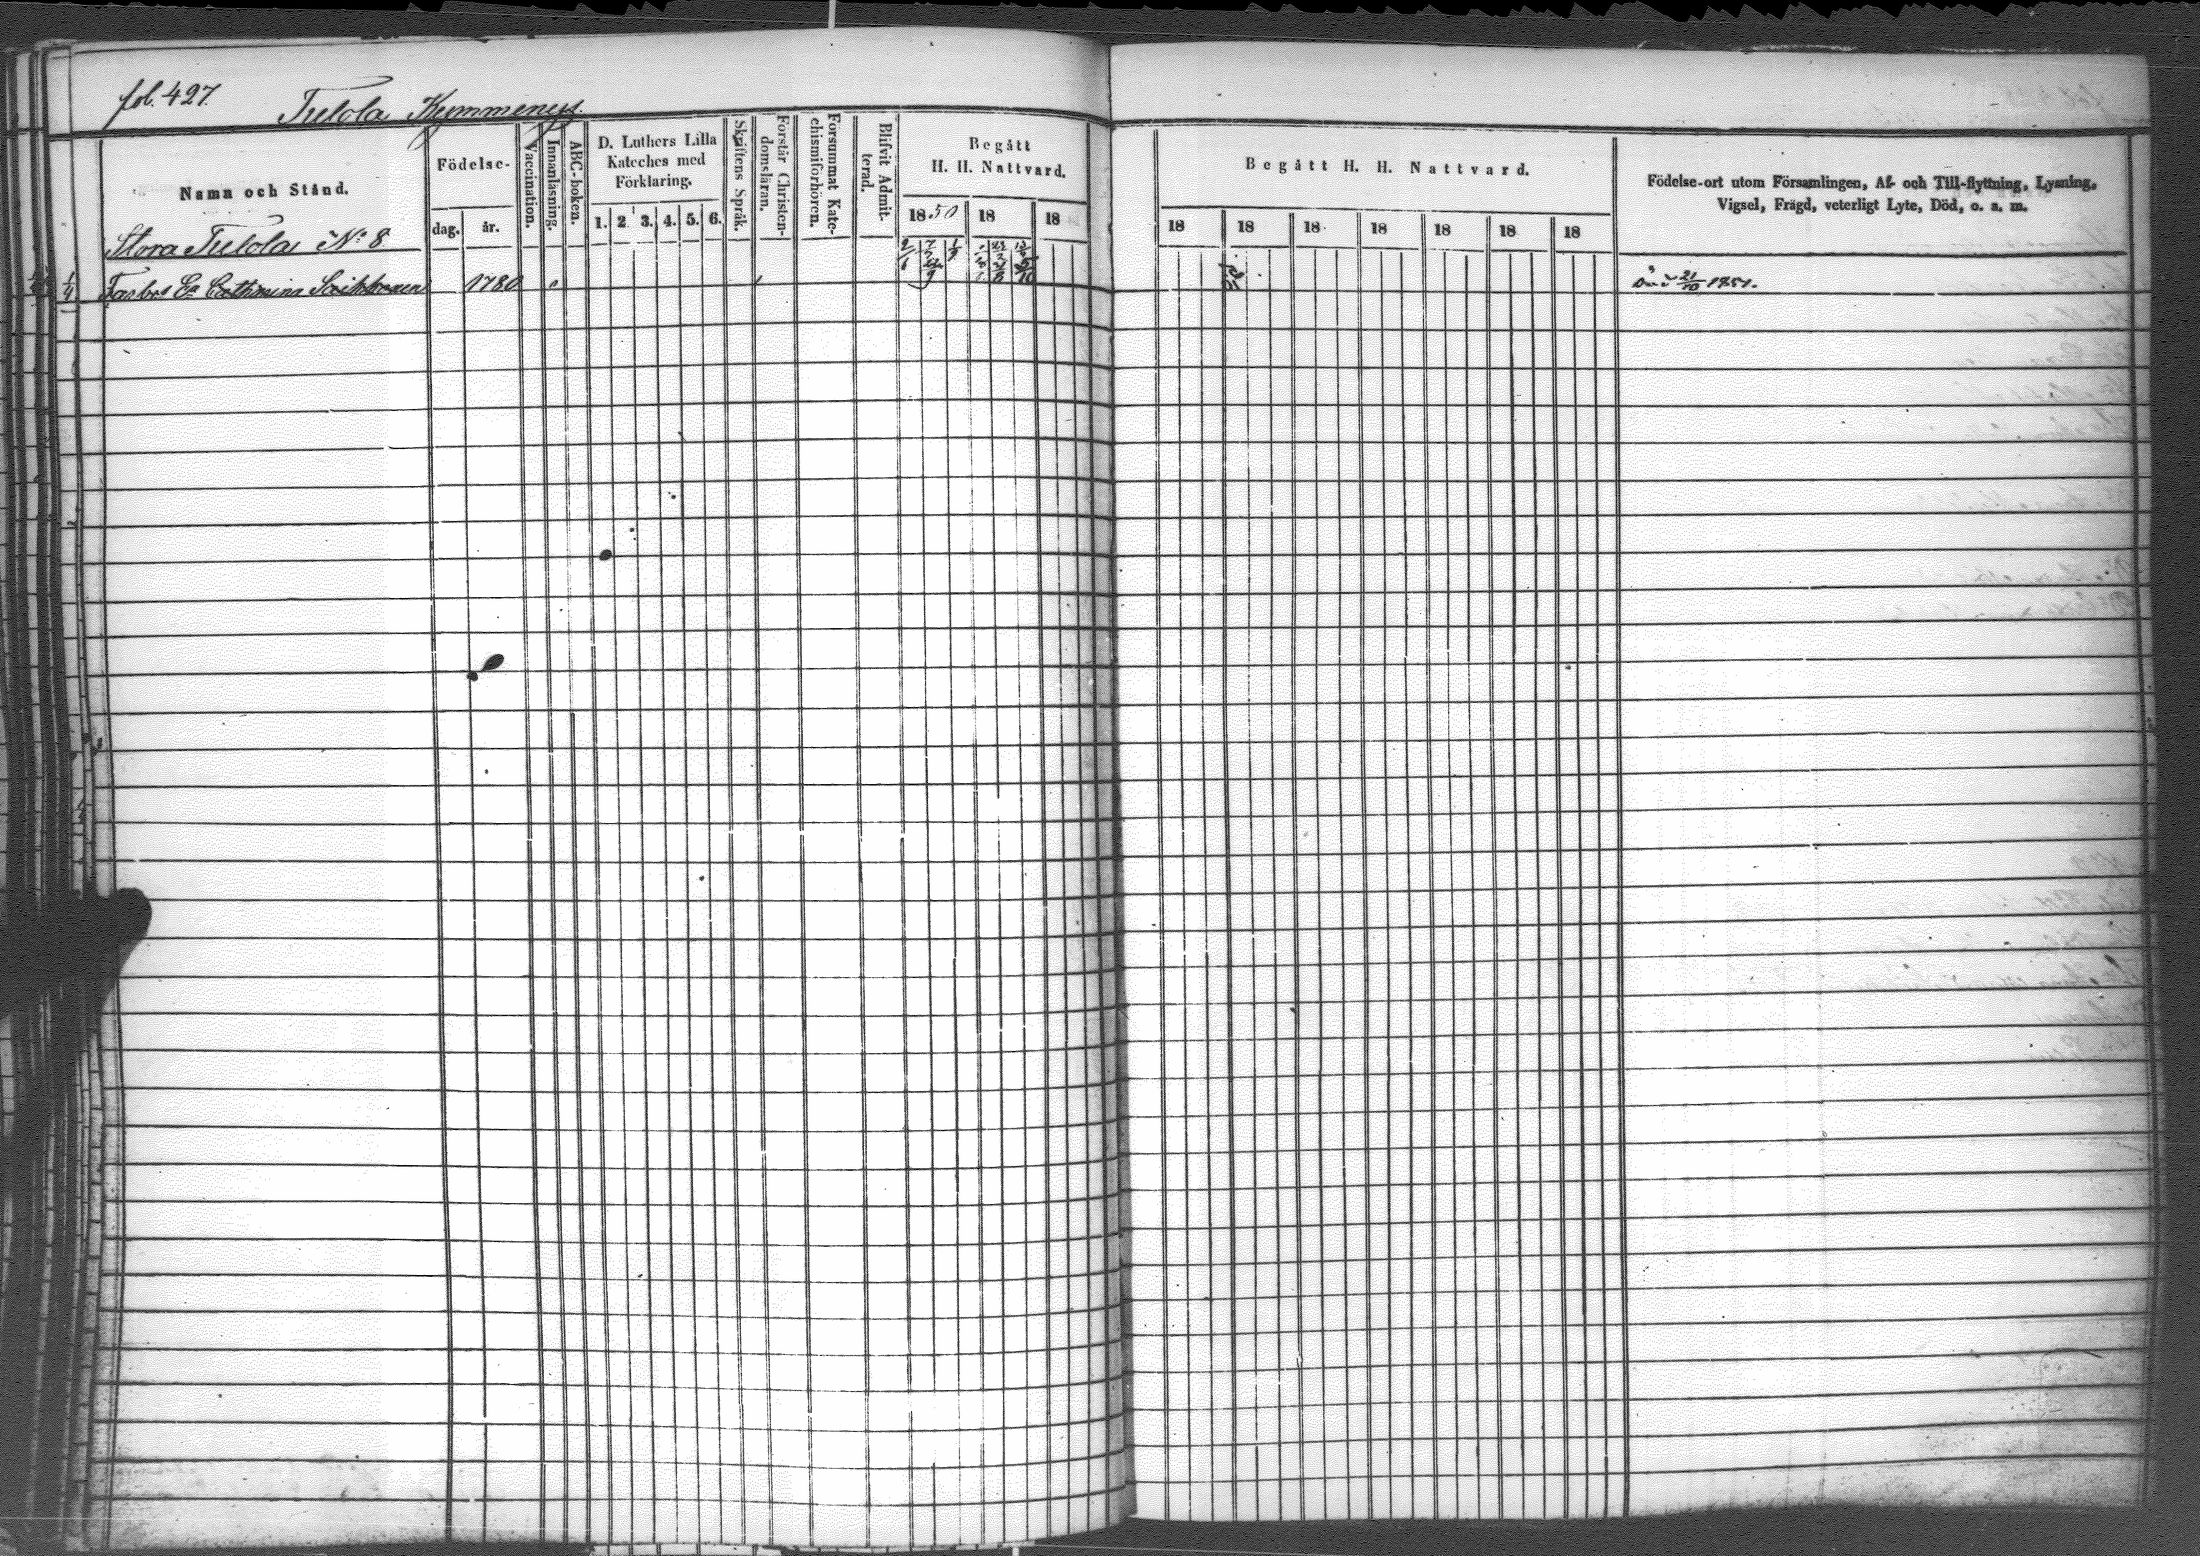 fol. 427. Tulola Kymmenys.
Nama och Stånd.
Födelse-
dag. år.
Vaccination.
Innanläsning.
ABC-boken.
D. Luthers Lilla
Kateches med
Förklaring.
1. 2 3. 4. 5. 6.
Skriftens Språk.
Förstår Christen-
domsläran.
Försummat Kate-
chismiförhören.
Blifvit Admit-
terad.
Begått
H. H. Nattvard.
18 50 18 18
Begått H. H. Nattvard.
18 18 18 18 18 18 18
Födelse-ort utom Församlingen, Af- och Till-flyttning, Lysning,
Vigsel, Frägd, veterligt Lyte, Död, o. s. m.
Stora Tulola No 8
Cathrina 1780 1851.